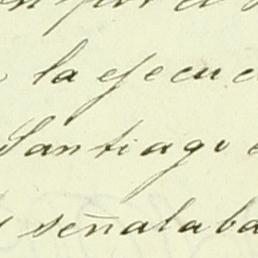 la ejecuc
Santiago
señalaba